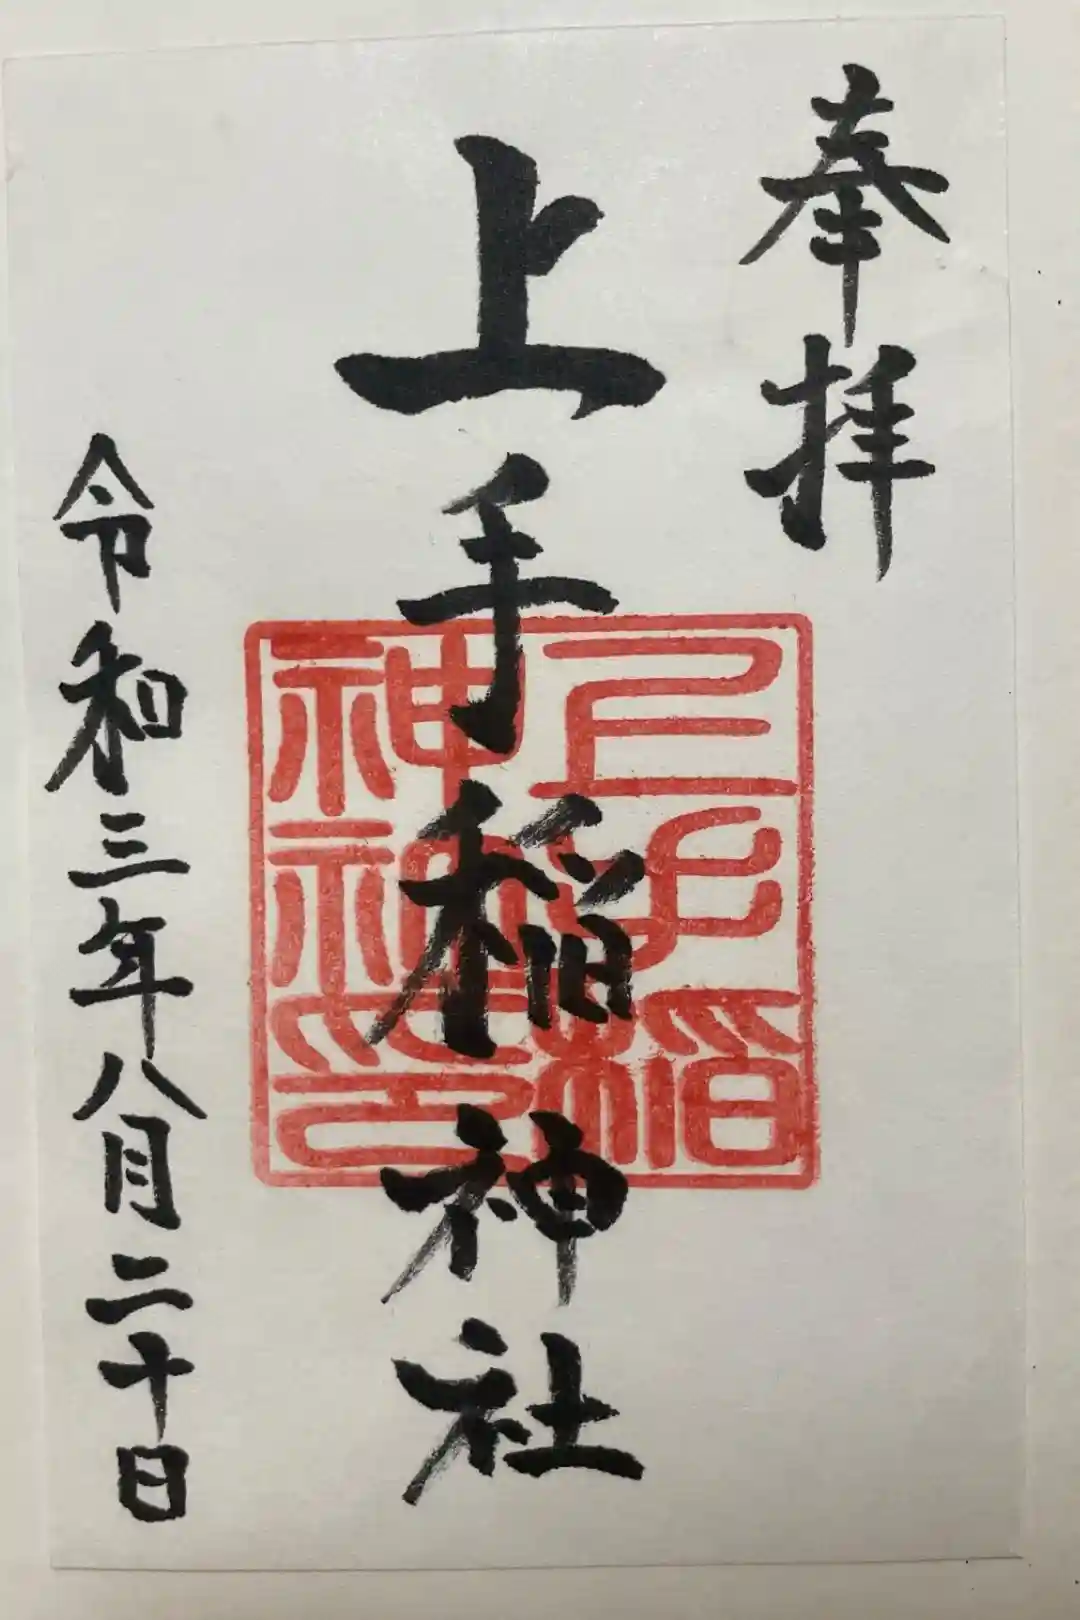 奉拝
上手稲神社
上手稲
神社印
令和三年八月二十日